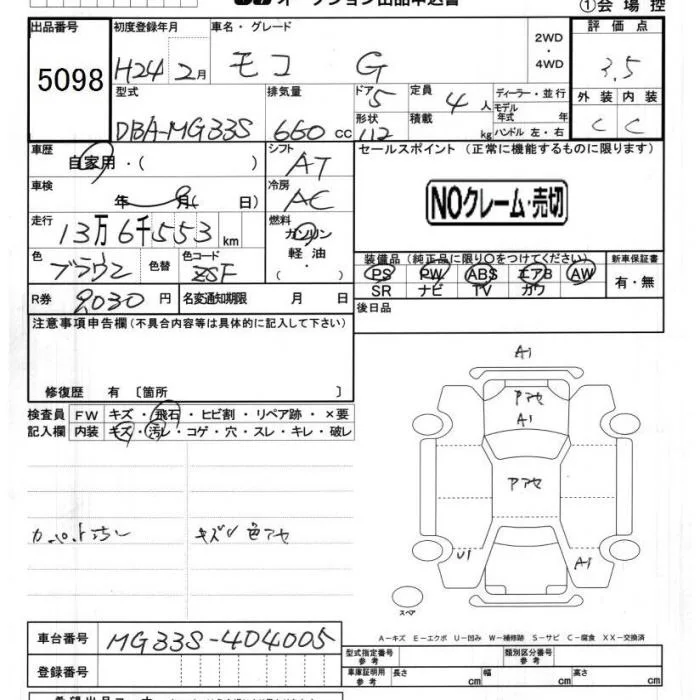 オークション出品申込書 ①会場控
出品番号 初度登録年月 車名・グレード 2WD・4WD 評価点
5098 H24 2月 モコ G 3.5
型式 排気量 ドア 5 定員 4人 ディーラー・並行 外装 内装
DBA-MG33S 660cc 形状 112 積載 kg モデル年式 年 ハンドル 左・右 C C
車歴 自家用・( ) シフト AT セールスポイント (正常に機能するものに限ります)
車検 年 月( 日) 冷房 AC NOクレーム・売切
走行 13万6千553km 燃料 ガソリン
軽油
・
( )
色 ブラウン 色替 色コード ZSF
装備品 (純正品に限り〇をつけてください) 新車保証書
PS PW ABS エアB AW 有・無
SR ナビ TV カワ
R券 2030円 名変通知期限 月 日 後日品
注意事項申告欄(不具合内容等は具体的に記入して下さい)
修復歴 有 〔箇所 〕
検査員 FW キズ・飛石・ヒビ割・リペア跡・×要
記入欄 内装 キズ・汚レ・コゲ・穴・スレ・キレ・破レ
キズソ 色アセ
A1
アセ
A1
アセ
U1 A1
スペア
A-キズ E-エクボ U-凹み W-補修跡 S-サビ C-腐食 XX-交換済
車台番号 MG33S-404005
登録番号
型式指定番号 参考 類別区分番号 参考
車庫証明用 参考 長さ cm 幅 cm 高さ cm